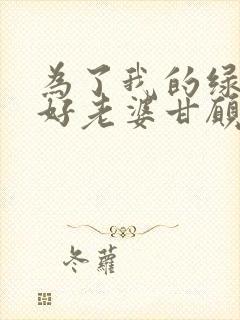 為了我的綠
好老婆甘願
冬蘿